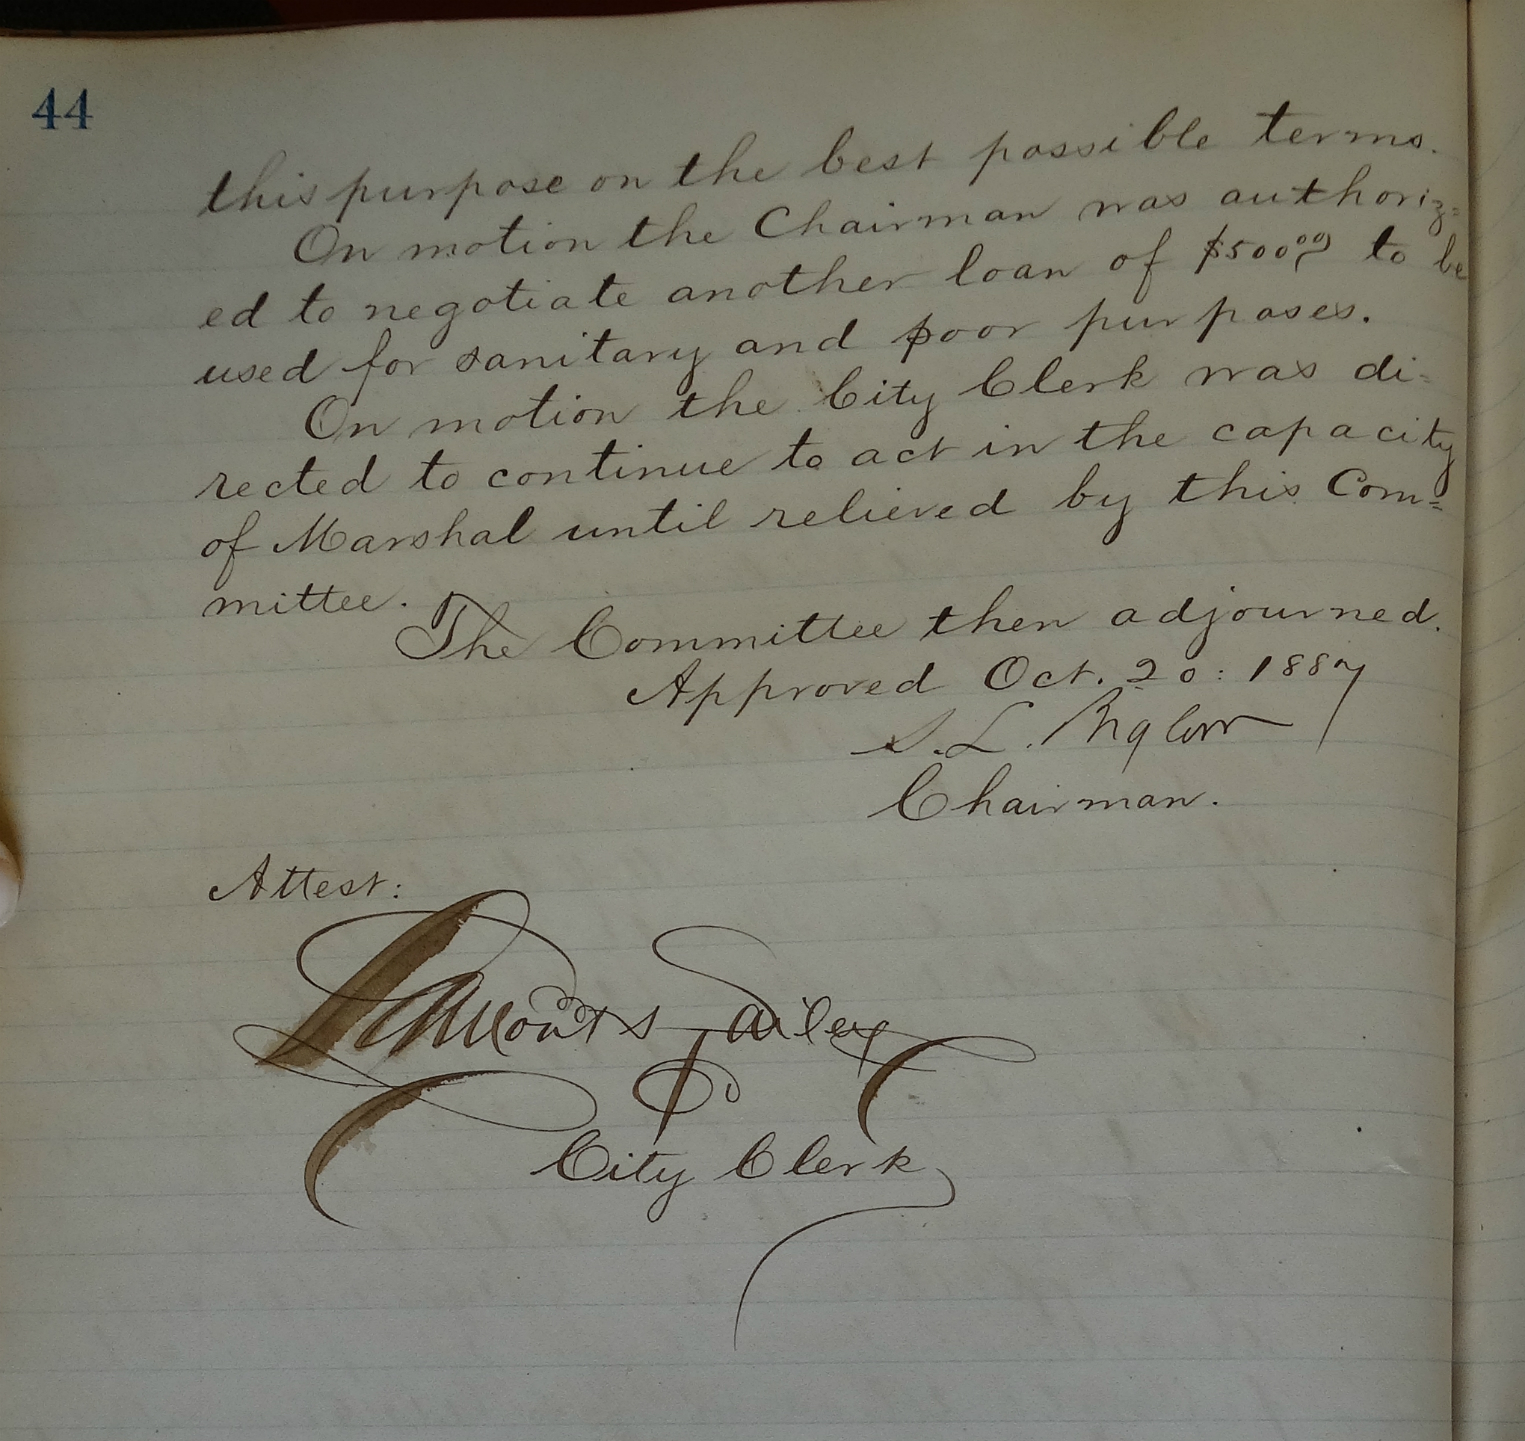 44
this purpose on the best possible terms.
On motion the Chairman was authoriz=
ed to negotiate another loan of $500.00 to be
used for sanitary and poor purposes.
On motion the City Clerk was di=
rected to continue to act in the capacity
of Marshal until relieved by this Com=
mittee.
The Committee then adjourned.
Approved Oct. 20: 1887
S. L.
Chairman.
Attest:
Lamount Bailey
City Clerk